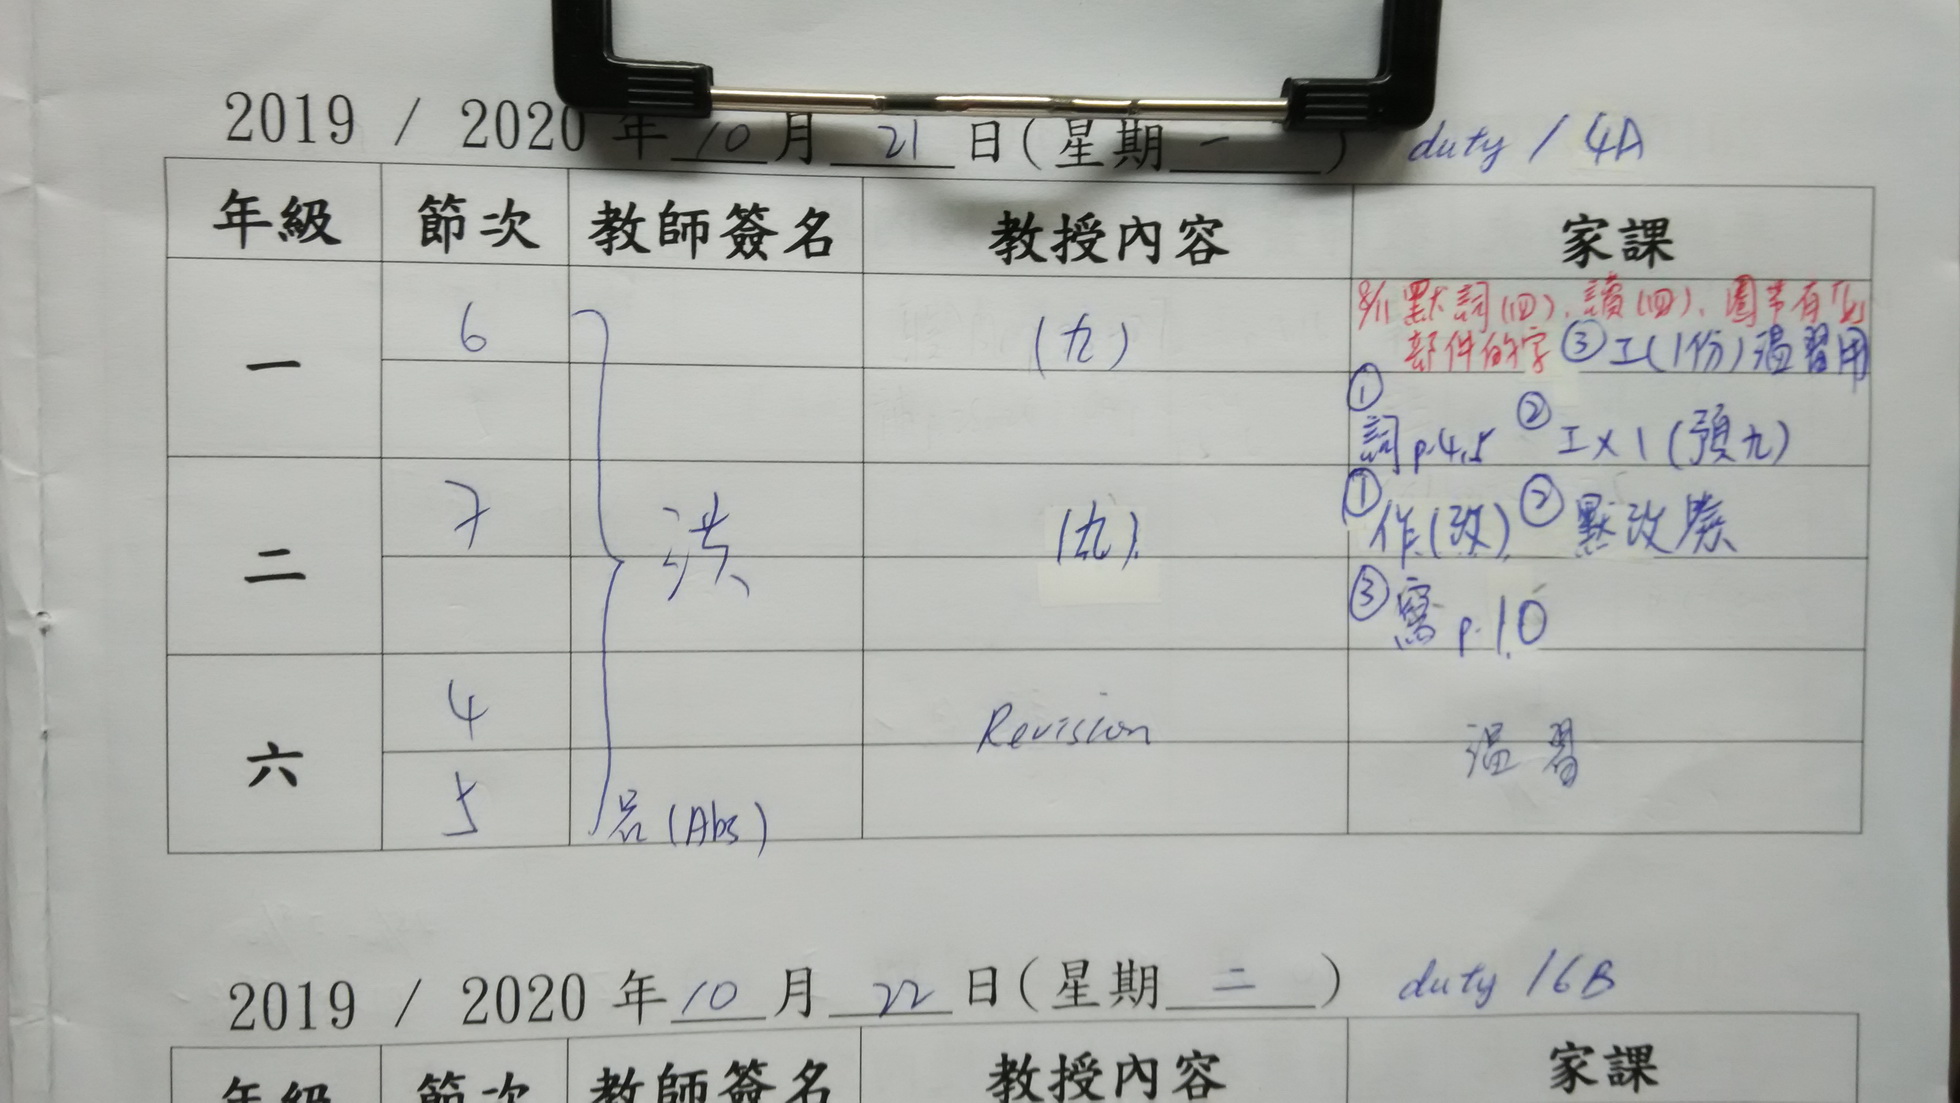 2019 / 2020 年 10 月 21 日(星期 一 ) duty / 4A
年級 節次 教師簽名 教授內容 家課
一 6 (九) 8/11 默詞(四), 讀(四), 圈帶有
部件的字 ③工(1份)溫習用
① 詞p.4,5 ② 工x1(預九)
二 7 洪 (九) ①作(改) ②默改
③寫p.10
六 4 Revision 溫習
5 (Abs)
2019 / 2020 年 10 月 22 日(星期 二 ) duty / 6B
年級 節次 教師簽名 教授內容 家課